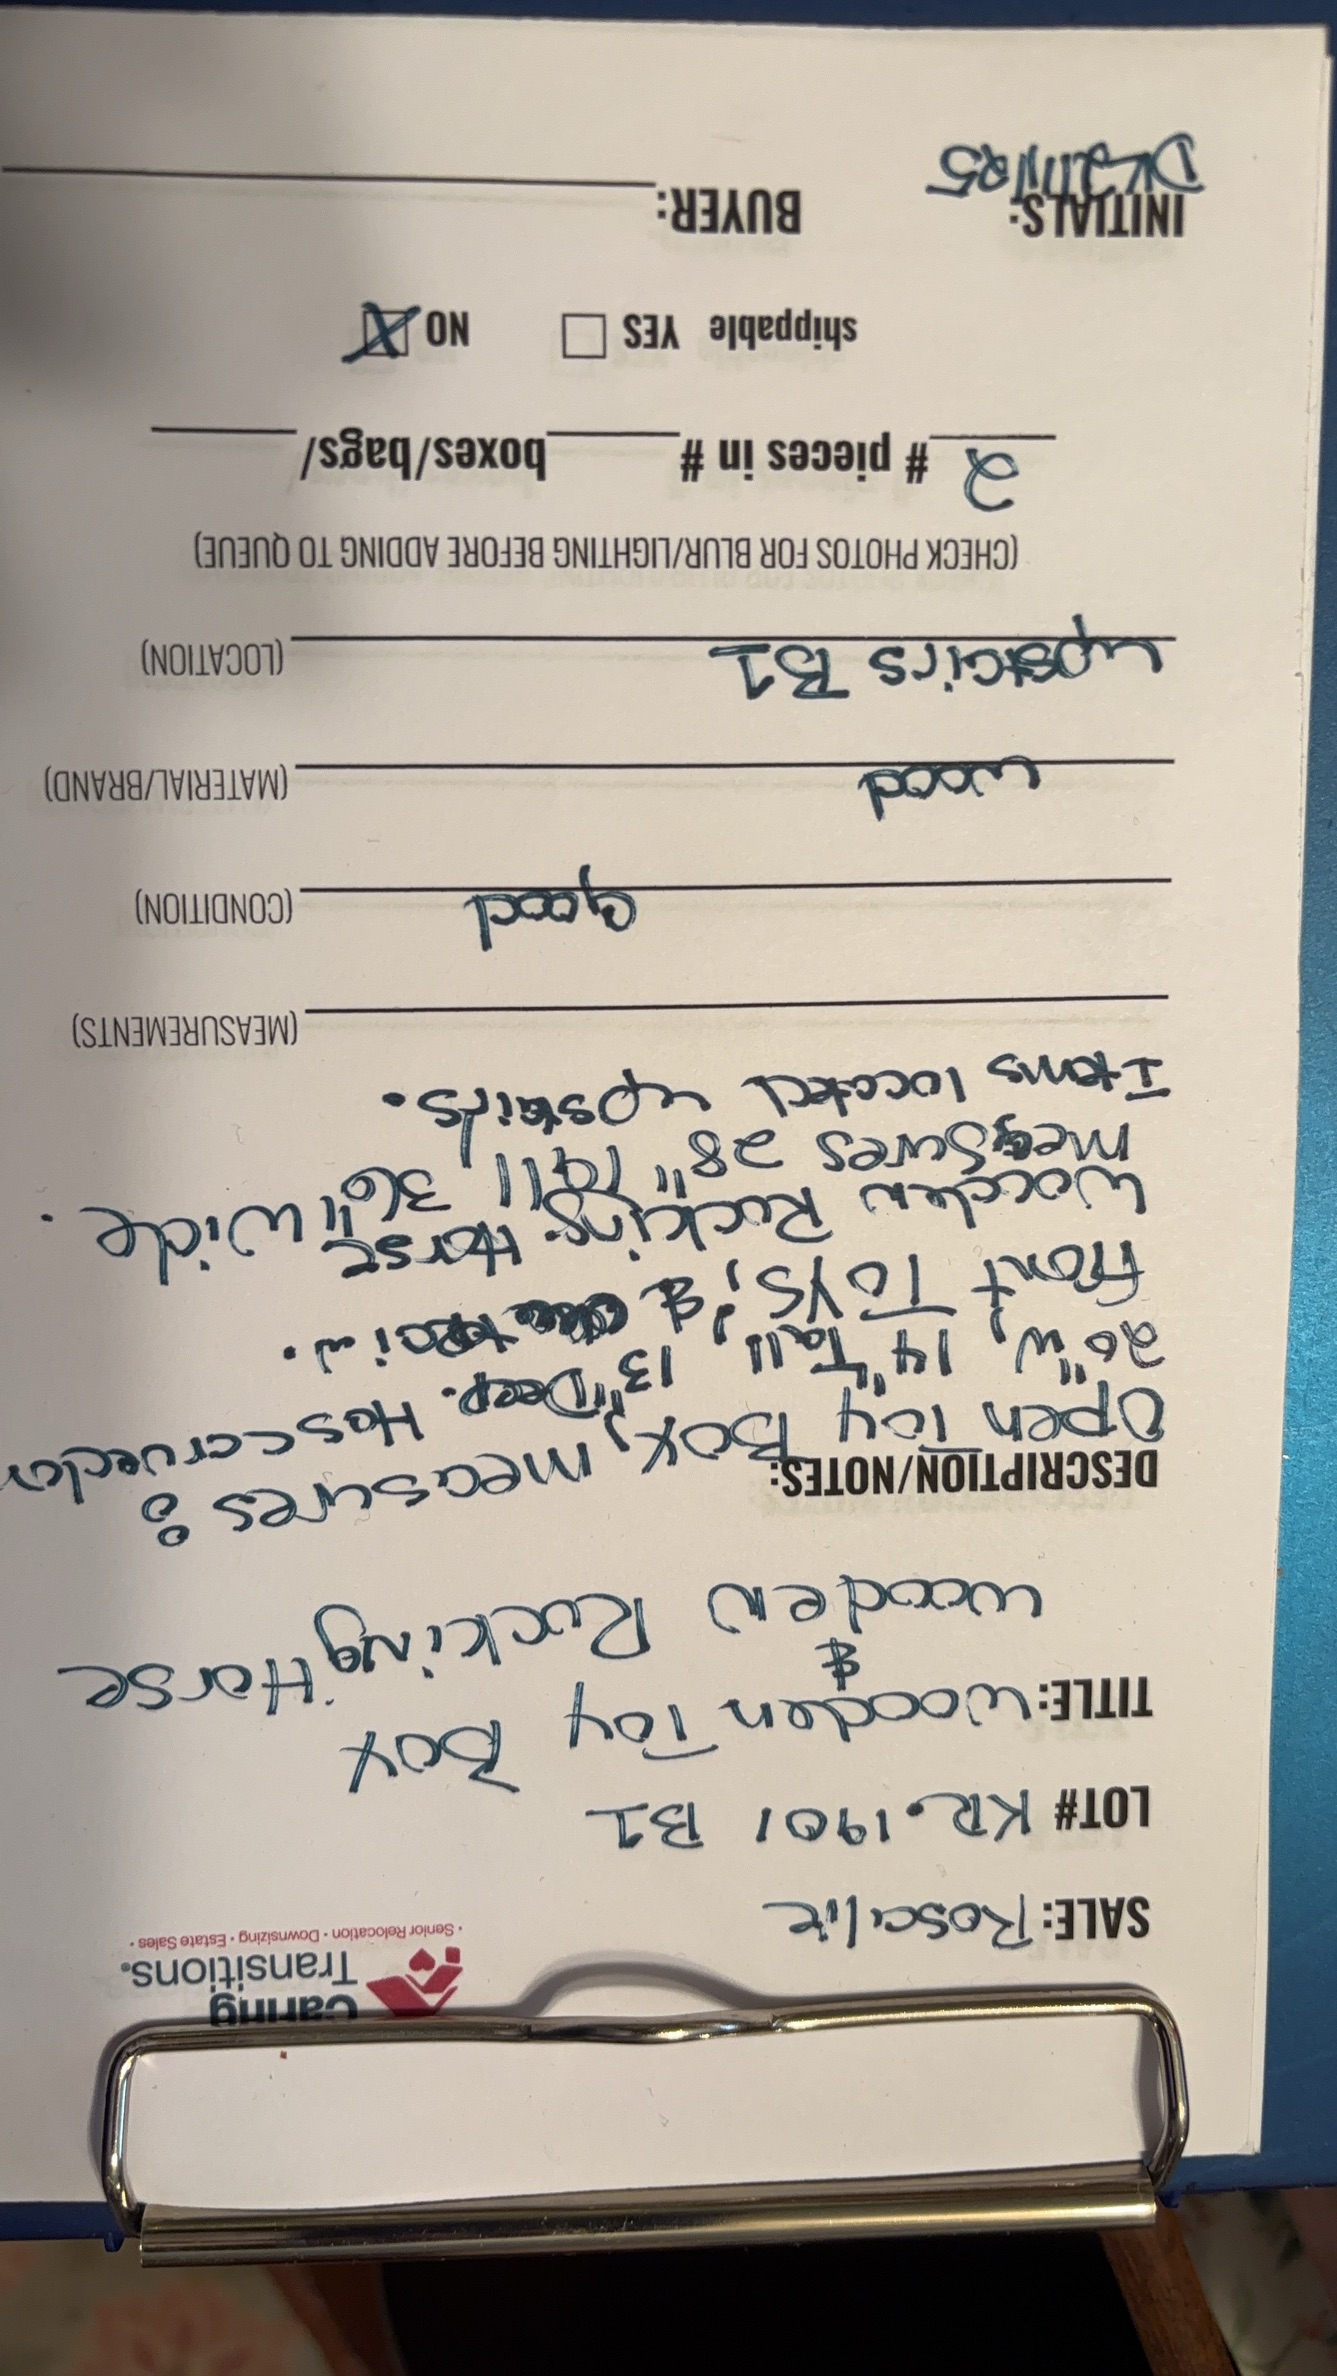 Caring
Transitions.
• Senior Relocation • Downsizing • Estate Sales •
SALE: Rosalie
LOT# KR.1901 B1
TITLE: Wooden Toy Box
&
Wooden Rocking Horse
DESCRIPTION/NOTES:
Open Toy Box, measures :
20"W, 14" Tall, 13" Deep. Has carved on
front TOYS, & train.
Wooden Rocking Horse
measures 28" Tall, 36" wide.
Items located upstairs.
(MEASUREMENTS)
good (CONDITION)
wood (MATERIAL/BRAND)
upstairs B1 (LOCATION)
(CHECK PHOTOS FOR BLUR/LIGHTING BEFORE ADDING TO QUEUE)
2 # pieces in # boxes/bags/
shippable YES NO X
INITIALS: BUYER:
DK 2/11/25